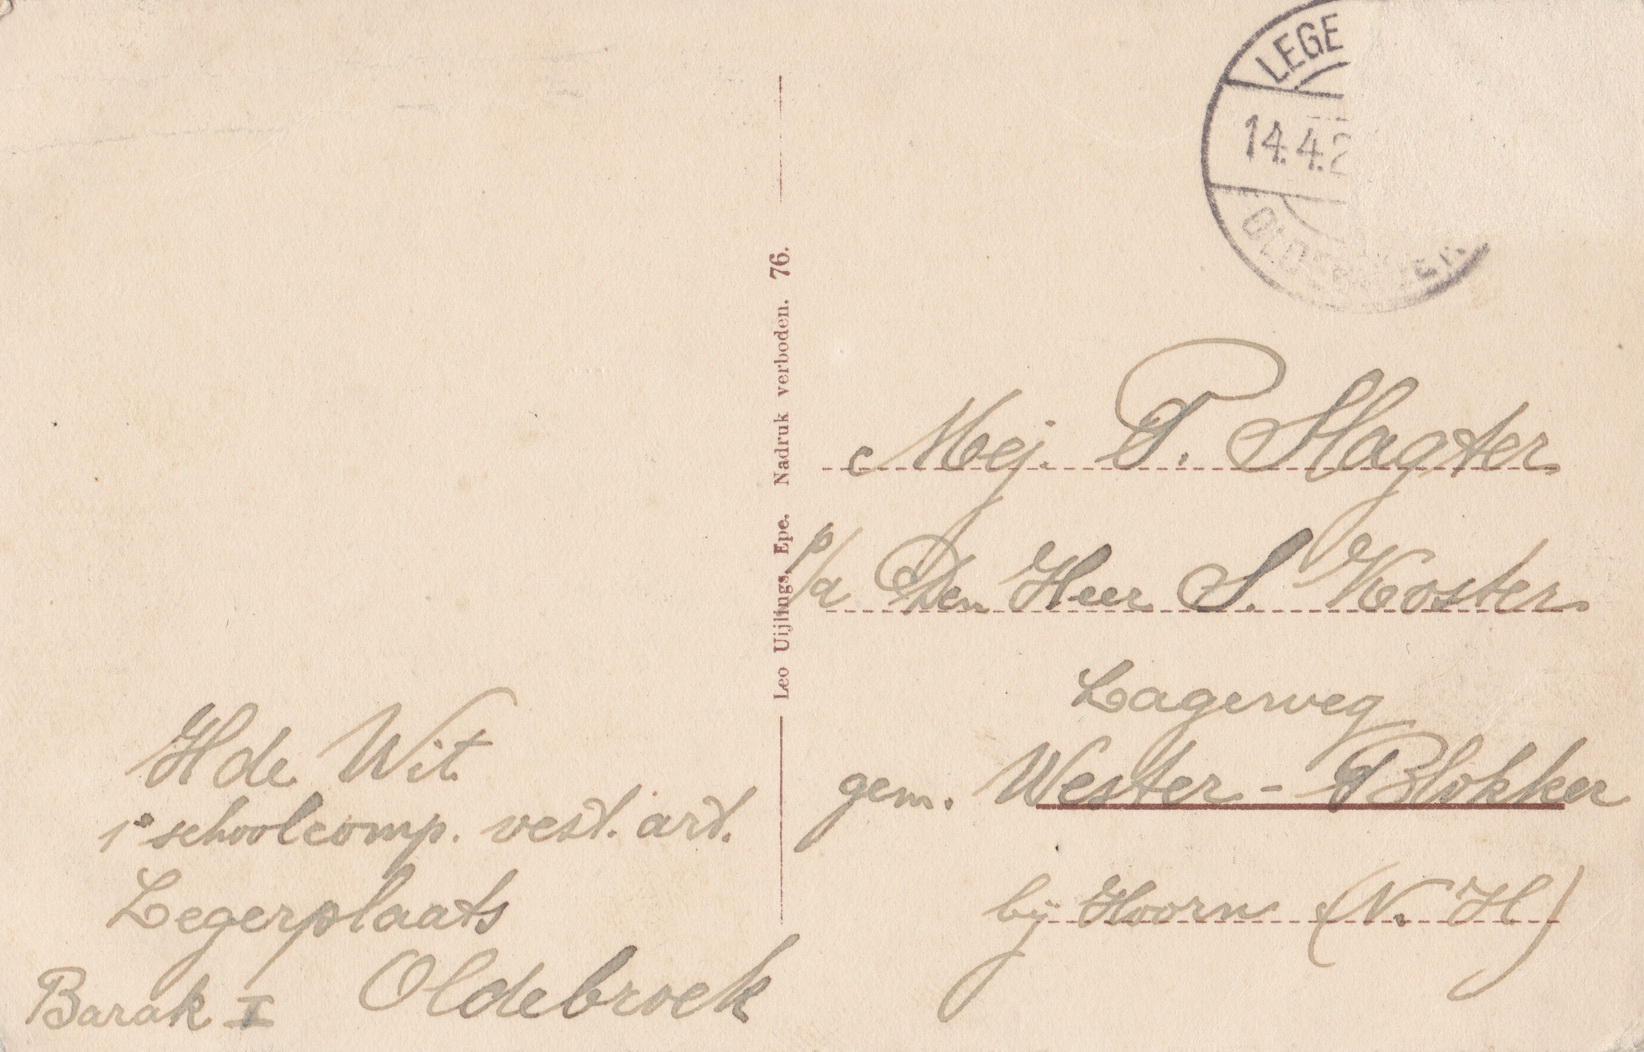 LEGE
14.4.2
Mej. T. Slagter
p/a Den Heer S. Koster
Lagerweg
gem. Wester-Blokker
bij Hoorn (N. H)
Leo Uijlings, Epe. Nadruk verboden. 76.
H de Wit
1e schoolcomp. vest. art.
Legerplaats
Oldebroek
Barak I